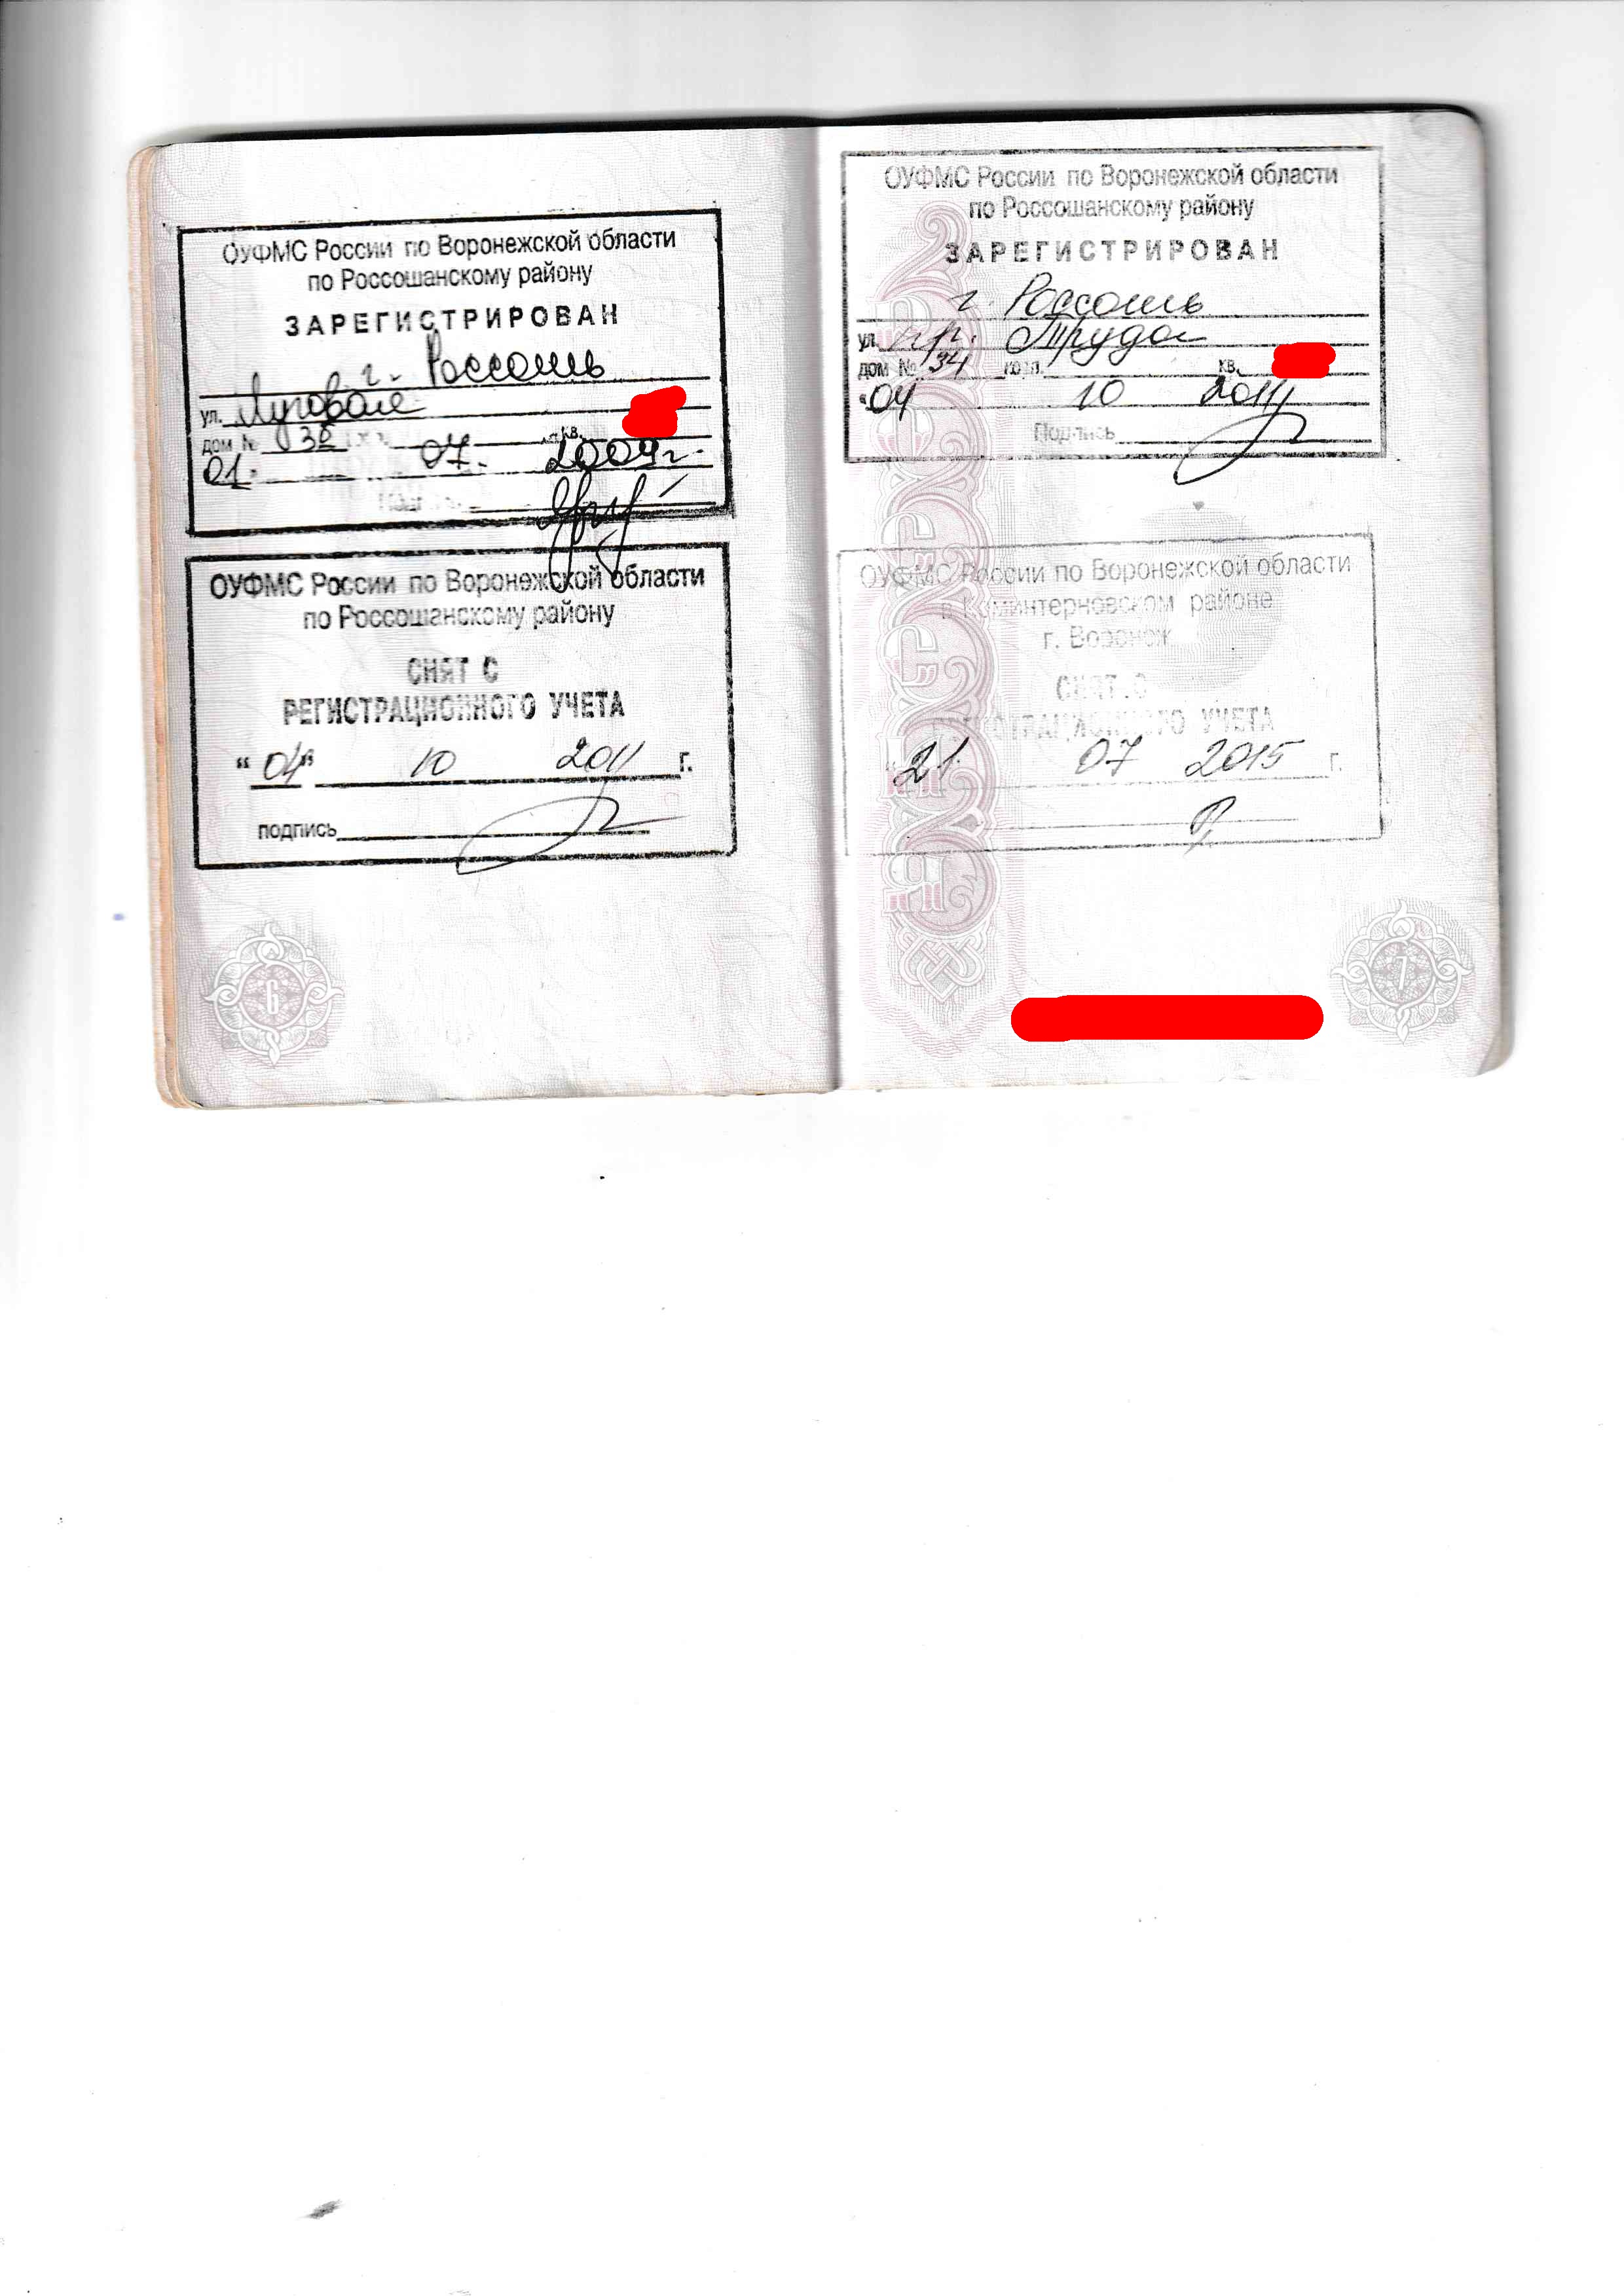 ОУФМС России по Воронежской области
по Россошанскому району
ЗАРЕГИСТРИРОВАН
г. Россошь
ул. Луговая
дом № 38 кв.
01. 07. 2009г.
ОУФМС России по Воронежской области
по Россошанскому району
СНЯТ С
РЕГИСТРАЦИОННОГО УЧЕТА
"04" 10 2011 г.
подпись
6
ОУФМС России по Воронежской области
по Россошанскому району
ЗАРЕГИСТРИРОВАН
г. Россошь
ул. пр. Труда
дом № 34 корп. кв.
"04 10 2011
Подпись
ОУФМС России по Воронежской области
в Коминтерновском районе
г. Воронеж
СНЯТ С
РЕГИСТРАЦИОННОГО УЧЕТА
"21 07 2015 г.
7